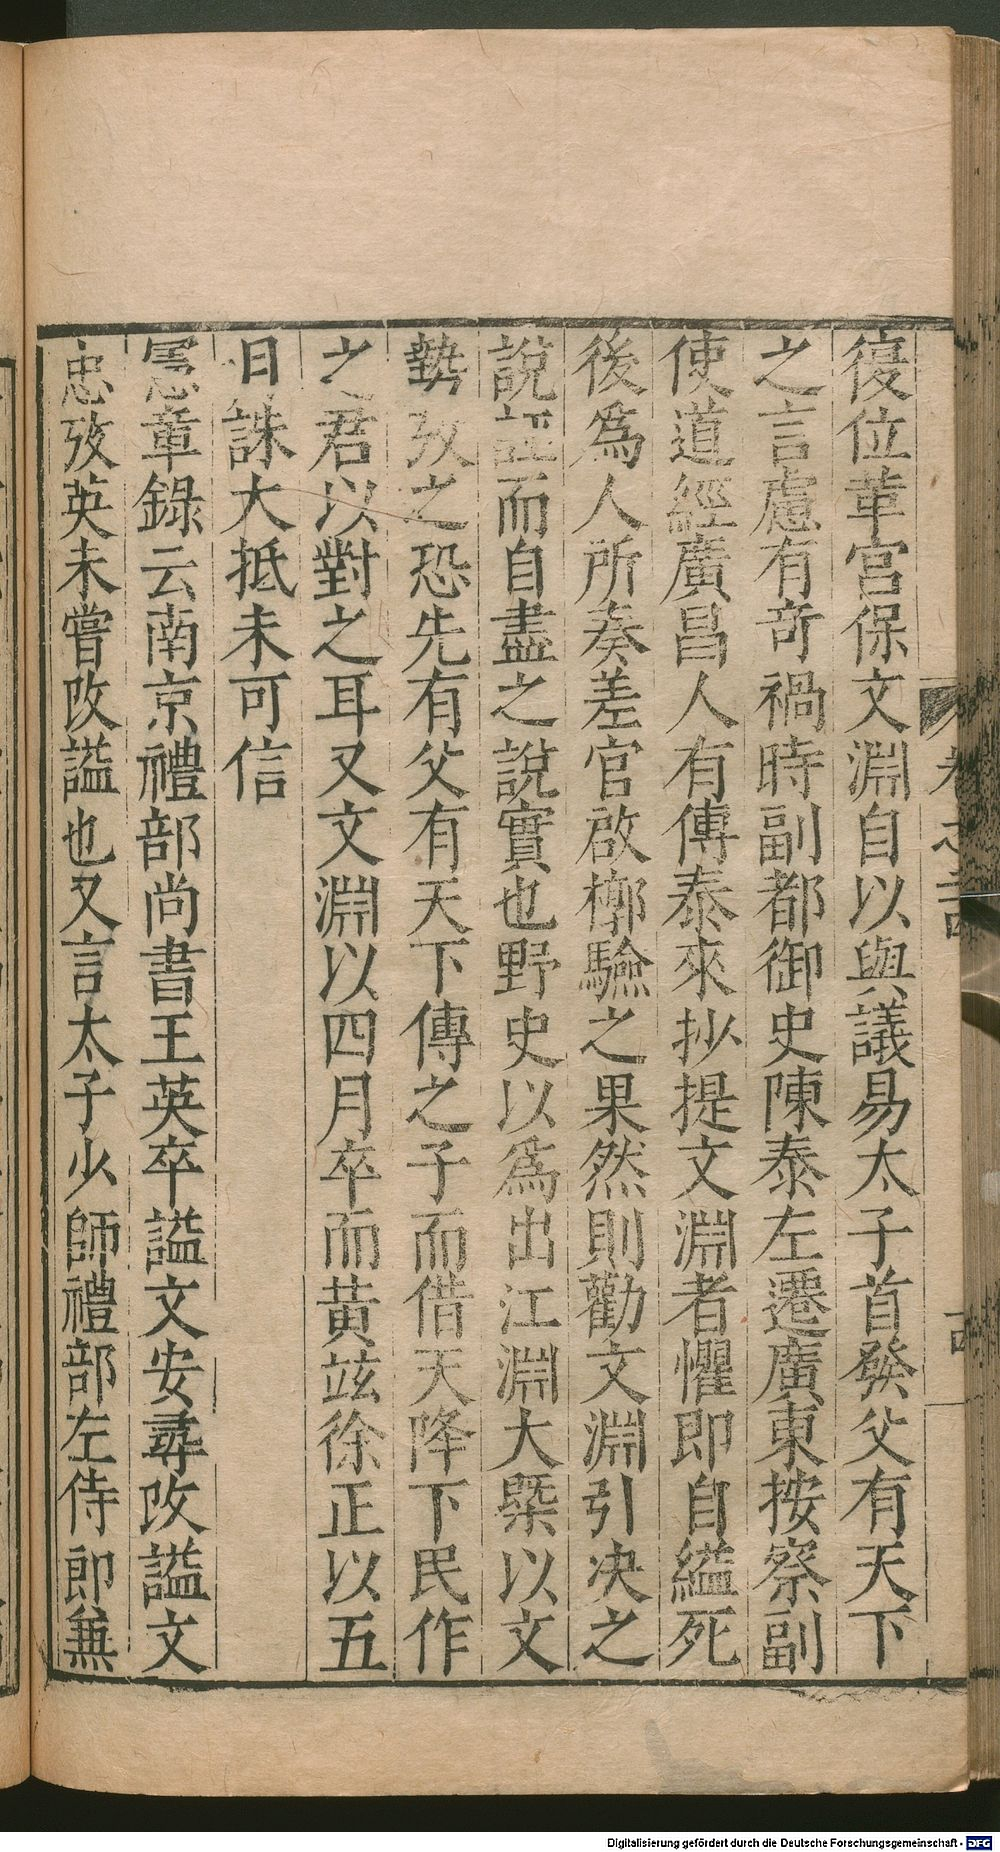 復位革宮保文淵自以與議易太子首發父有天下
之言慮有奇禍時副都御史陳泰左遷廣東按察副
使道經廣昌人有傳泰來抄提文淵者懼即自縊死
後爲人所奏差官啟槨驗之果然則勸文淵引决之
說誣而自盡之說實也野史以爲出江淵大槩以文
勢攷之恐先有父有天下傳之子而借天降下民作
之君以對之耳又文淵以四月卒而黃竑徐正以五
月誅大抵未可信
憲章錄云南京禮部尚書王英卒謚文安尋改謚文
忠攷英未嘗改謚也又言太子少師禮部左侍郎兼
Digitalisierung gefördert durch die Deutsche Forschungsgemeinschaft - DFG